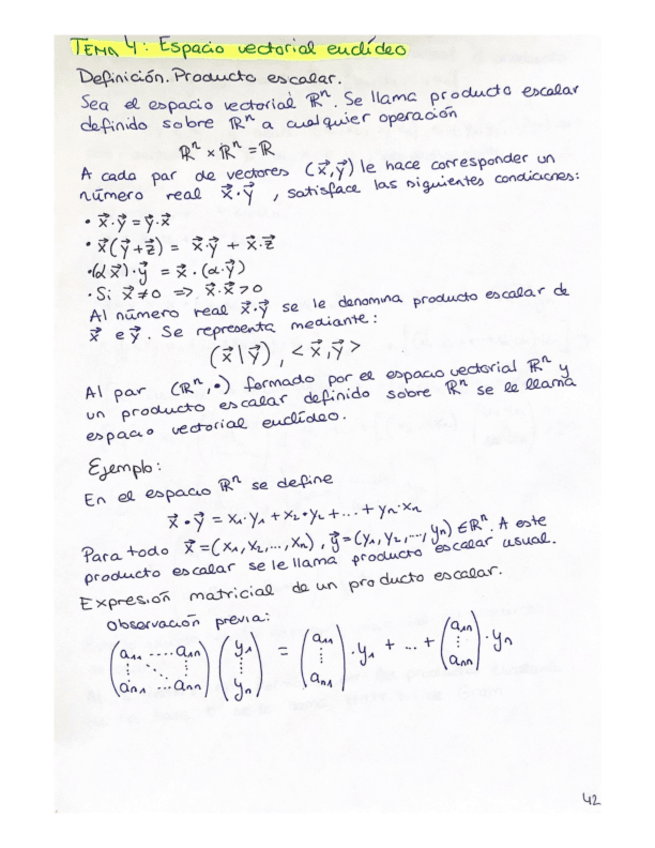 TEMA 4: Espacio vectorial euclídeo
Definición. Producto escalar.
Sea el espacio vectorial ℝⁿ. Se llama producto escalar
definido sobre ℝⁿ a cualquier operación
ℝⁿ × ℝⁿ = ℝ
A cada par de vectores (x⃗,y⃗) le hace corresponder un
número real x⃗·y⃗, satisface las siguientes condiciones:
• x⃗·y⃗ = y⃗·x⃗
• x⃗(y⃗+z⃗) = x⃗·y⃗ + x⃗·z⃗
•(αx⃗)·y⃗ = x⃗·(α·y⃗)
• Si x⃗≠0 => x⃗·x⃗>0
Al número real x⃗·y⃗ se le denomina producto escalar de
x⃗ e y⃗. Se representa mediante:
(x⃗|y⃗), <x⃗,y⃗>
Al par (ℝⁿ,•) formado por el espacio vectorial ℝⁿ y
un producto escalar definido sobre ℝⁿ se le llama
espacio vectorial euclídeo.
Ejemplo:
En el espacio ℝⁿ se define
x⃗·y⃗ = x₁·y₁+x₂·y₂+...+yₙ·xₙ
Para todo x⃗=(x₁,x₂,...,xₙ), y⃗=(y₁,y₂,...,yₙ)∈ℝⁿ. A este
producto escalar se le llama producto escalar usual.
Expresión matricial de un producto escalar.
Observación previa:
(a₁₁ ..... a₁ₙ) (y₁) = (a₁₁) ·y₁ + ... + (a₁ₙ) ·yₙ
(⋮ ⋱ ⋮) (⋮) (⋮) (⋮)
(aₙ₁ ... aₙₙ) (yₙ) (aₙ₁) (aₙₙ)
42